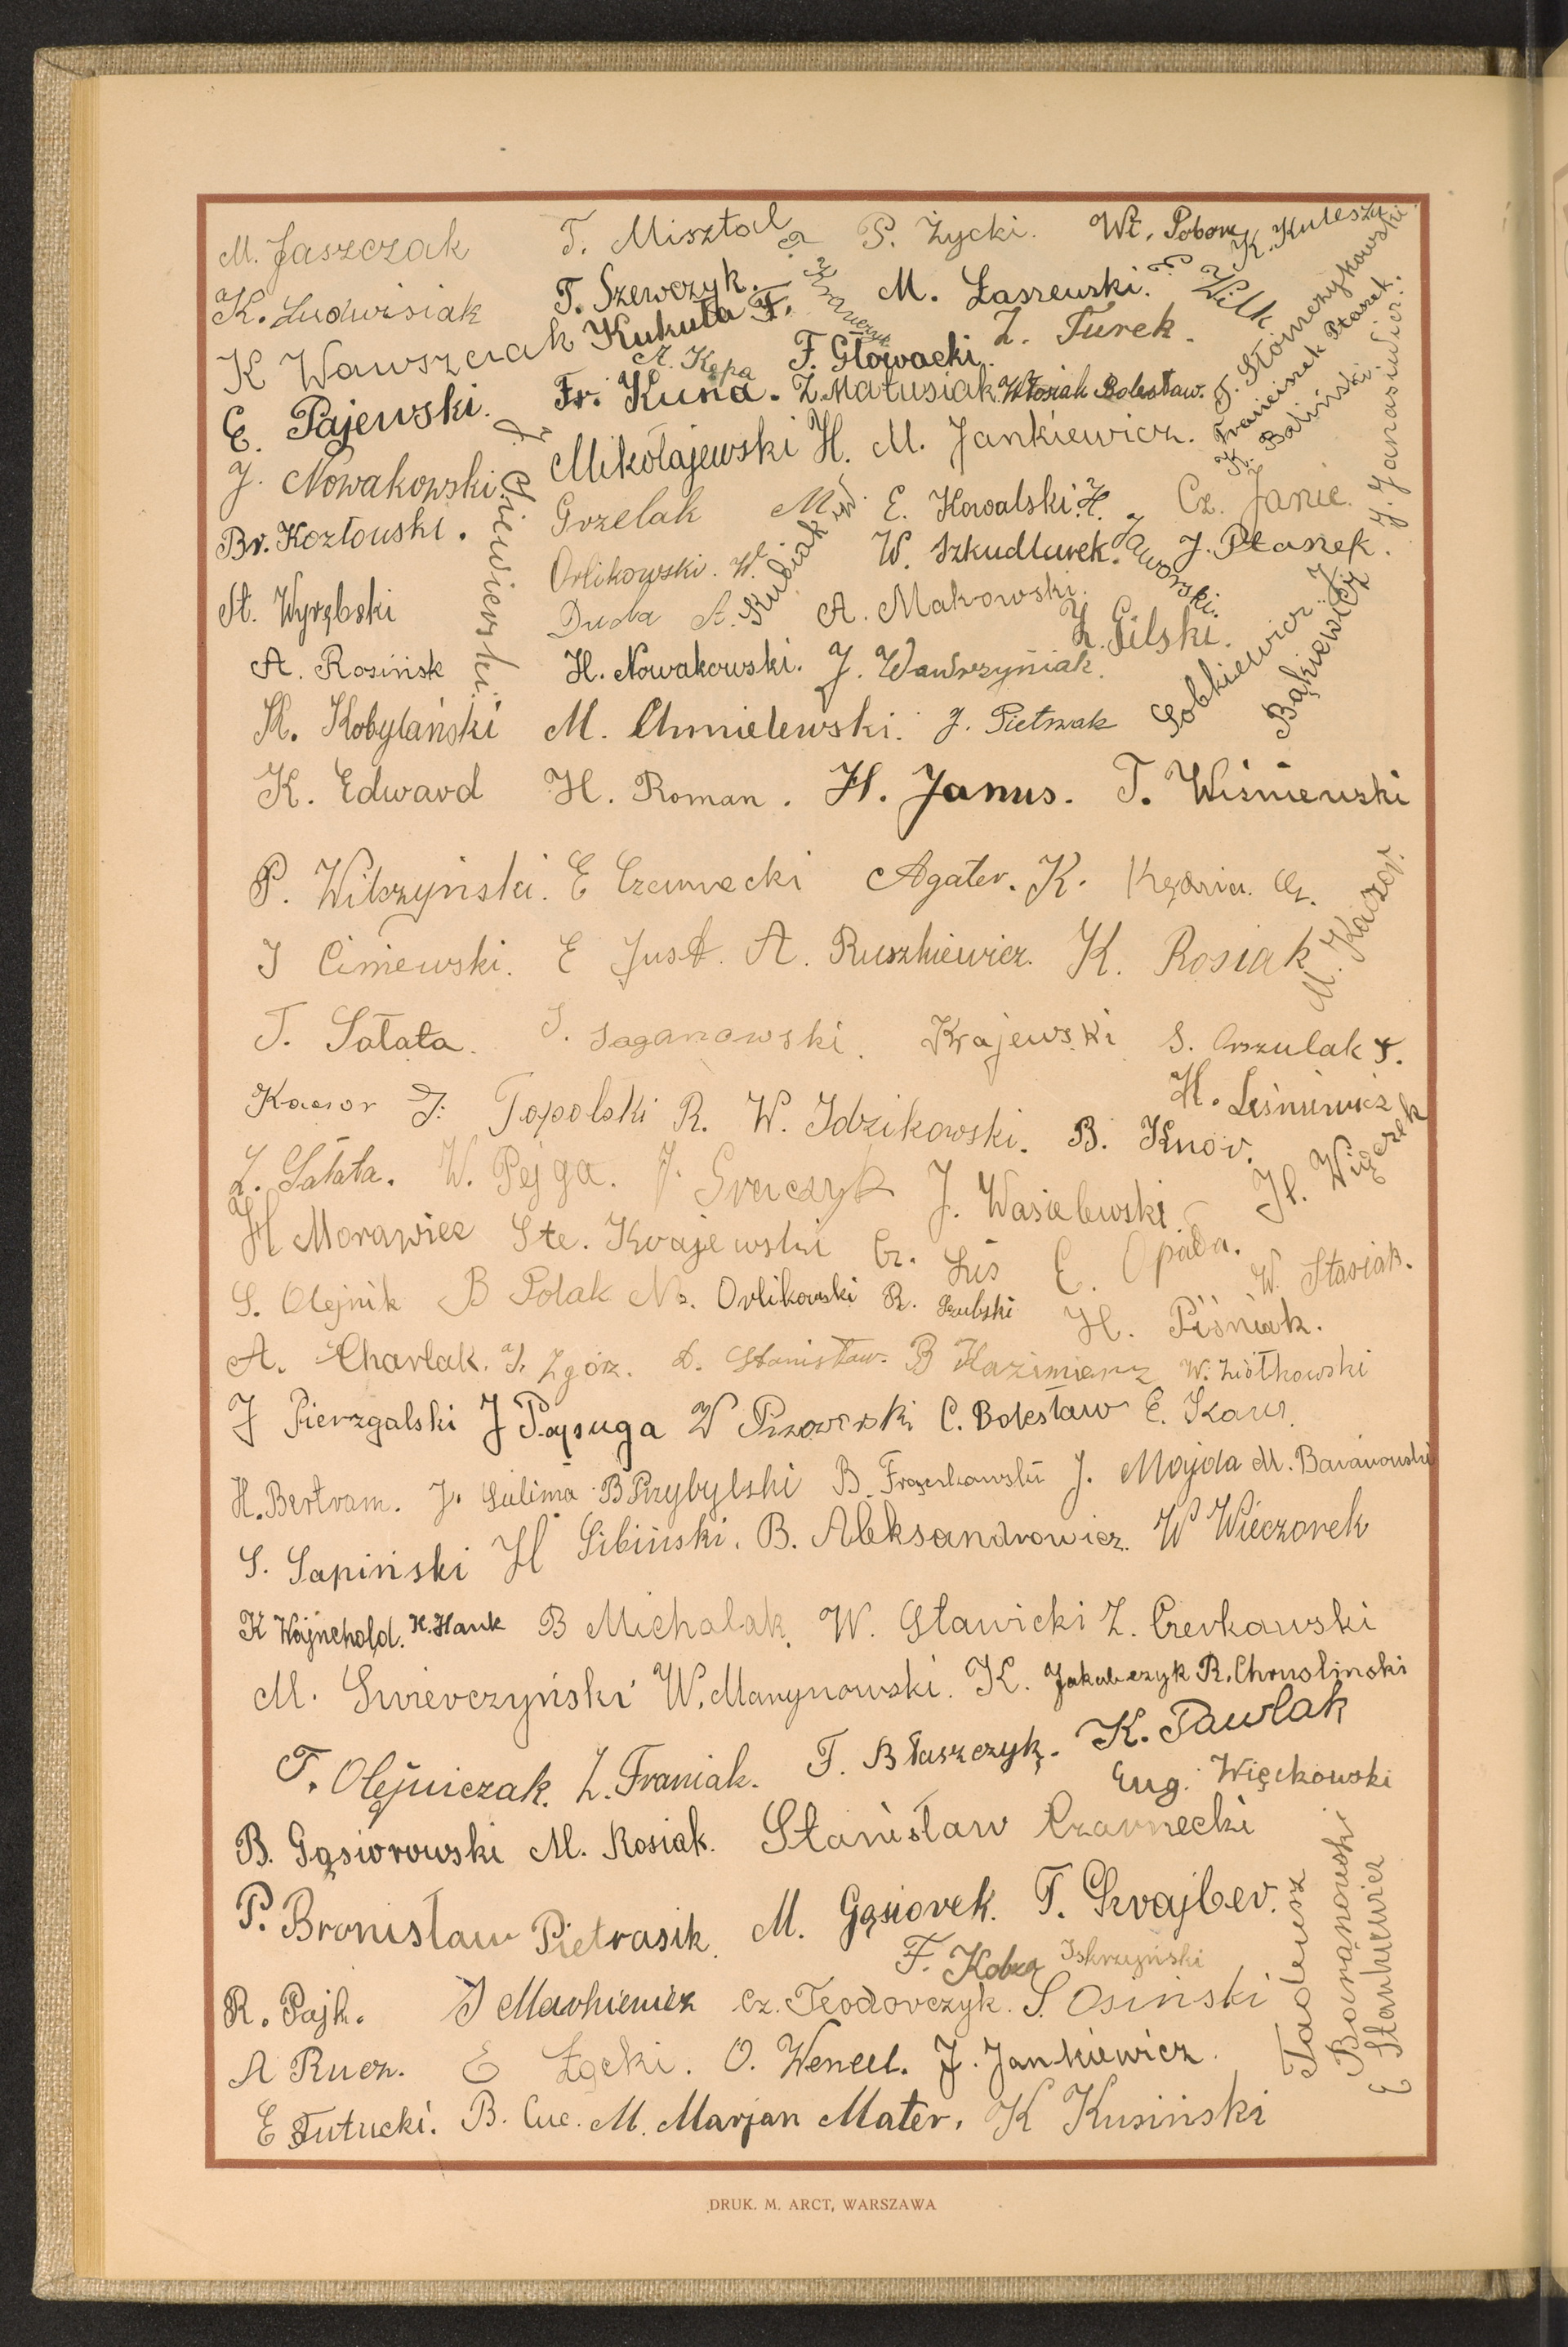 M. Jaszczak T. Misztal P. Życki. Wł. Pobora K. Kuleszy
K. Ludwisiak T. Szewczyk. S. Krawczyk M. Łaszewski. E. Wilk.
K Wawszczak Kukuła F. F. Głowacki. Z. Turek. T. Słomczykowski
A. Kępa
E. Pajewski. Fr. Kuna. Z. Matusiak Włosiak Bolesław. Franciszek Ptaszek.
K. Baliński.
J. Janasiewicz.
J. Nowakowski. Mikołajewski H. M. Jankiewicz.
J. Gniewierski.
Br. Kozłowski. Grzelak M. E. Kowalski. H. Jaworski. Cz. Janic.
Orlikowski. W. Kubiak W. W. Szkudlarek. J. Ptasnek.
St. Wyrębski Duda A. A. Makowski. Z. Gilski.
A. Rosińsk H. Nowakowski. J. Wawrzyniak. Sobkiewicz J.
Bąkiewicz
K. Kobylański M. Chmielewski. J. Pietrzak
K. Edward H. Roman. H. Janus. T. Wiśniewski
P. Wilczyński. E Czarnecki Agater. K. Kędzia. Cz.
M. Kaczor.
J Ciniewski. E Just. A. Ruszkiewicz. K. Rosiak
T. Sałata. S. Saganowski. Krajewski S. Orszulak T.
Kacior J. Topolski R. W. Idzikowski. B. Knor. H. Leśniewicz
Z. Sałata. W. Pejga. J. Graczyk J. Wasielewski. H. Wiączek
H Morawiec Ste. Krajewski Cz. Lis E. Opada. W. Stasiak.
S. Olejnik B Polak Ns. Orlikowski R. H. Piśniak.
A. Charlak. J. Zgórz. D. Stanisław. B Kazimierz W. Ziółkowski
J Pierzgalski J Papuga W Piwowarski C. Bolesław E. Skaur.
H. Bertram. J. Sulima B Przybylski B. Frączkowski J. Majda M. Baranowski
S. Sapiński H Sibiński. B. Aleksandrowicz. W Wieczorek
K Wajnchold. H. Hauk B Michalak. W. Sławicki Z. Cerkawski
M. Świerczyński W. Marynowski. K. Jakubczyk R. Chruslinski
T. Olejniczak. Z. Franiak. F. Błaszczyk. K. Pawlak
Eug. Więckowski
B. Gąsiorowski M. Rosiak. Stanisław Czarnecki
P. Bronisław Pietrasik. M. Gąsiorek. T. Szrajber.
F. Kobza Iskrzyński
R. Pajk. J Markiewicz Cz. Teodorczyk. S. Osiński
Tadeusz Baranowski
E Stankiewicz
A Rucz. E Łącki. O. Wencel. J. Jankiewicz.
E Tutucki. B. Cuc. M. Marjan Mater. K Kusiński
DRUK. M. ARCT, WARSZAWA